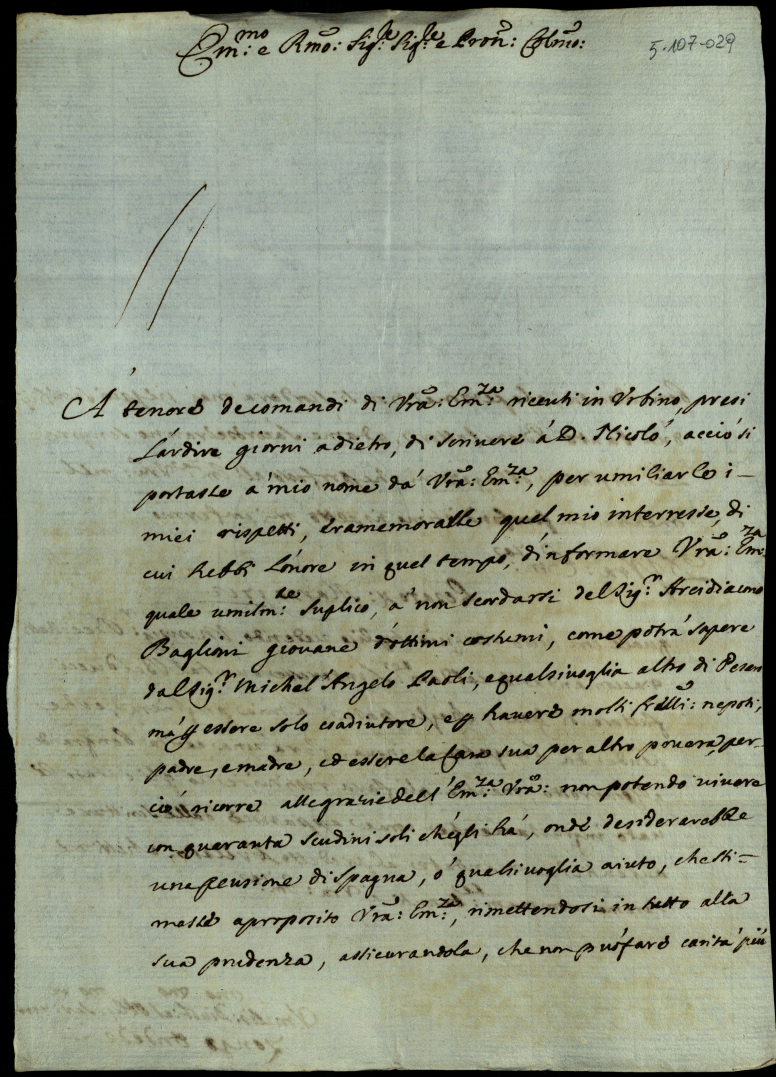 Em:mo e Rmõ: Sig:re Sig:re e Prõn: Colmõ:
5.107-029
A' tenore de comandi di Vrã: Em:za riceuti in Urbino, presi
L'ardire giorni adietro, di scriuere á D. Nicoló, acció si
portasse a' mio nome da' Vrã: Em:za, per umiliarle i
miei rispetti, e ramemorasse quel mio interresse, di
cui hebbi L'onore in quel tempo, d'informare Vrã: Em:za
quale umilm:te suplico, a' non scordarsi del Sig:r Arcidiacono
Baglioni giouane d'ottimi costumi, come potrá sapere
dal Sig:r Michel'Angelo Paoli, e qualsiuoglia altro di Pesaro
má p essere solo coadiutore, e p hauere molti frãlli: nepoti,
padre, e madre, ed essere la Casa sua per altro pouera, per-
ció ricorre alle grazie dell'Em:za Vrã: non potendo uiuere
con quaranta scudini soli ch'egli há, onde desiderarebbe
una pensione di Spagna, ó qualsiuoglia aiuto, che sti-
masse a proposito Vrã: Em:za, rimettendosi in tutto alla
sua prudenza, assicurandola, che non può fare caritá più